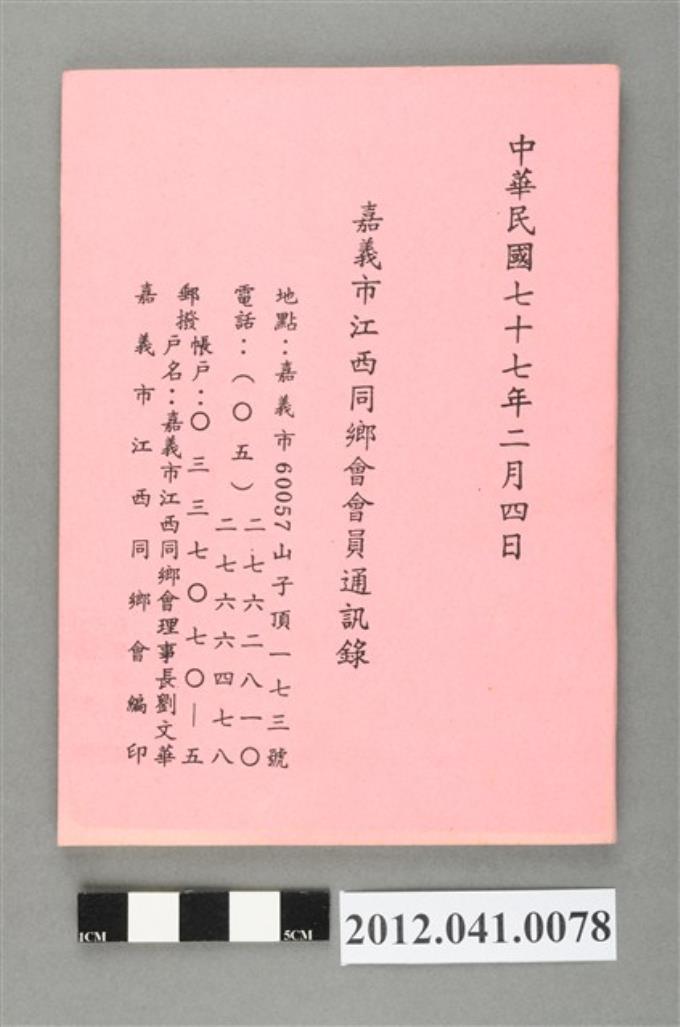 中華民國七十七年二月四日
嘉義市江西同鄉會會員通訊錄
地點：嘉義市60057山子頂一七三號
電話：（〇五）二七六二八一〇
二七六六四七八
郵撥帳戶：〇三三七〇七〇—五
戶名：嘉義市江西同鄉會理事長劉文華
嘉義市江西同鄉會編印
1CM
5CM
2012.041.0078